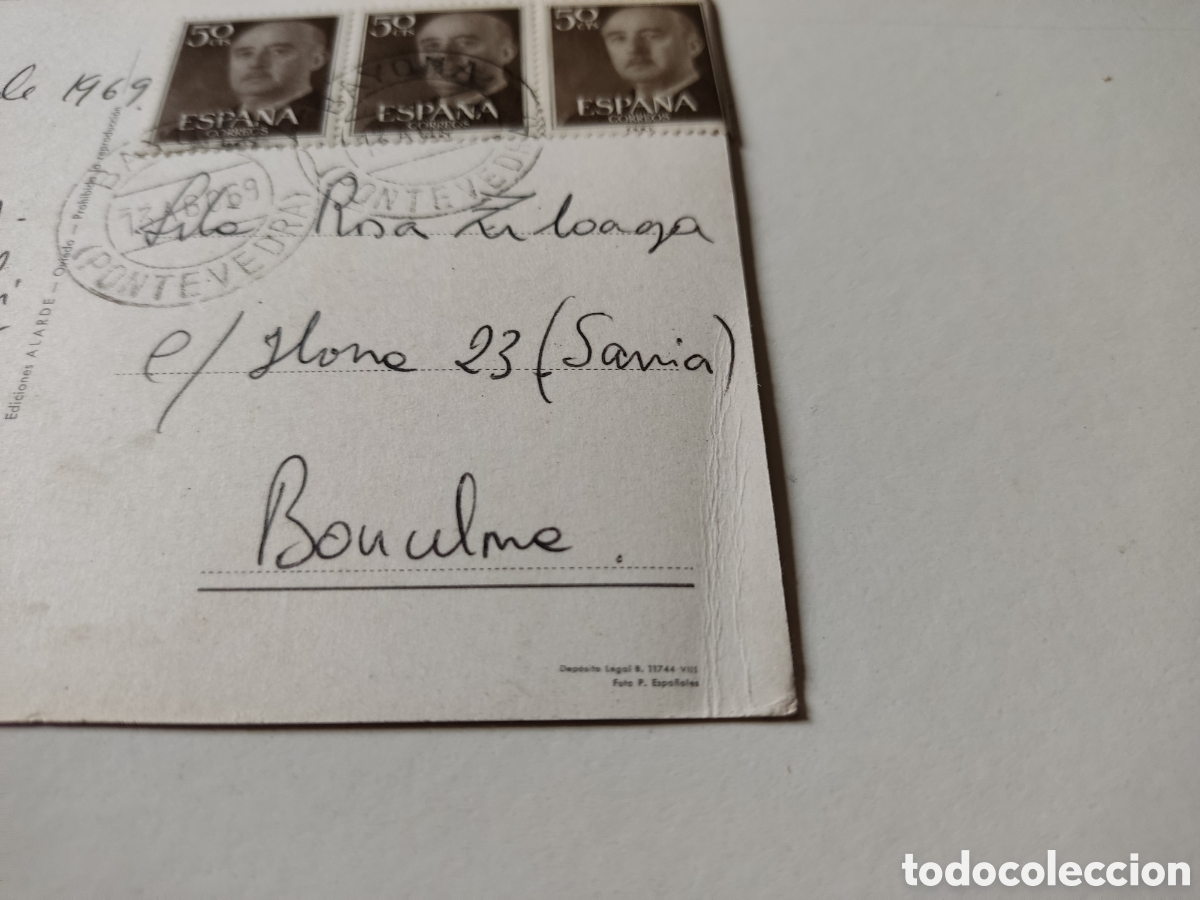 50 CTS 50 CTS 50 CTS
ESPAÑA ESPAÑA ESPAÑA
CORREOS CORREOS CORREOS
de 1969
BAYONA
(PONTEVEDRA)
BAYONA
(PONTEVEDRA)
Rosa Zuloaga
c/ 23 (Sarria)
Barcelona.
Ediciones ALARDE — Oviedo — Prohibida la reproducción
Depósito Legal B. 11744-VIII
Foto P. Españoles
todocoleccion